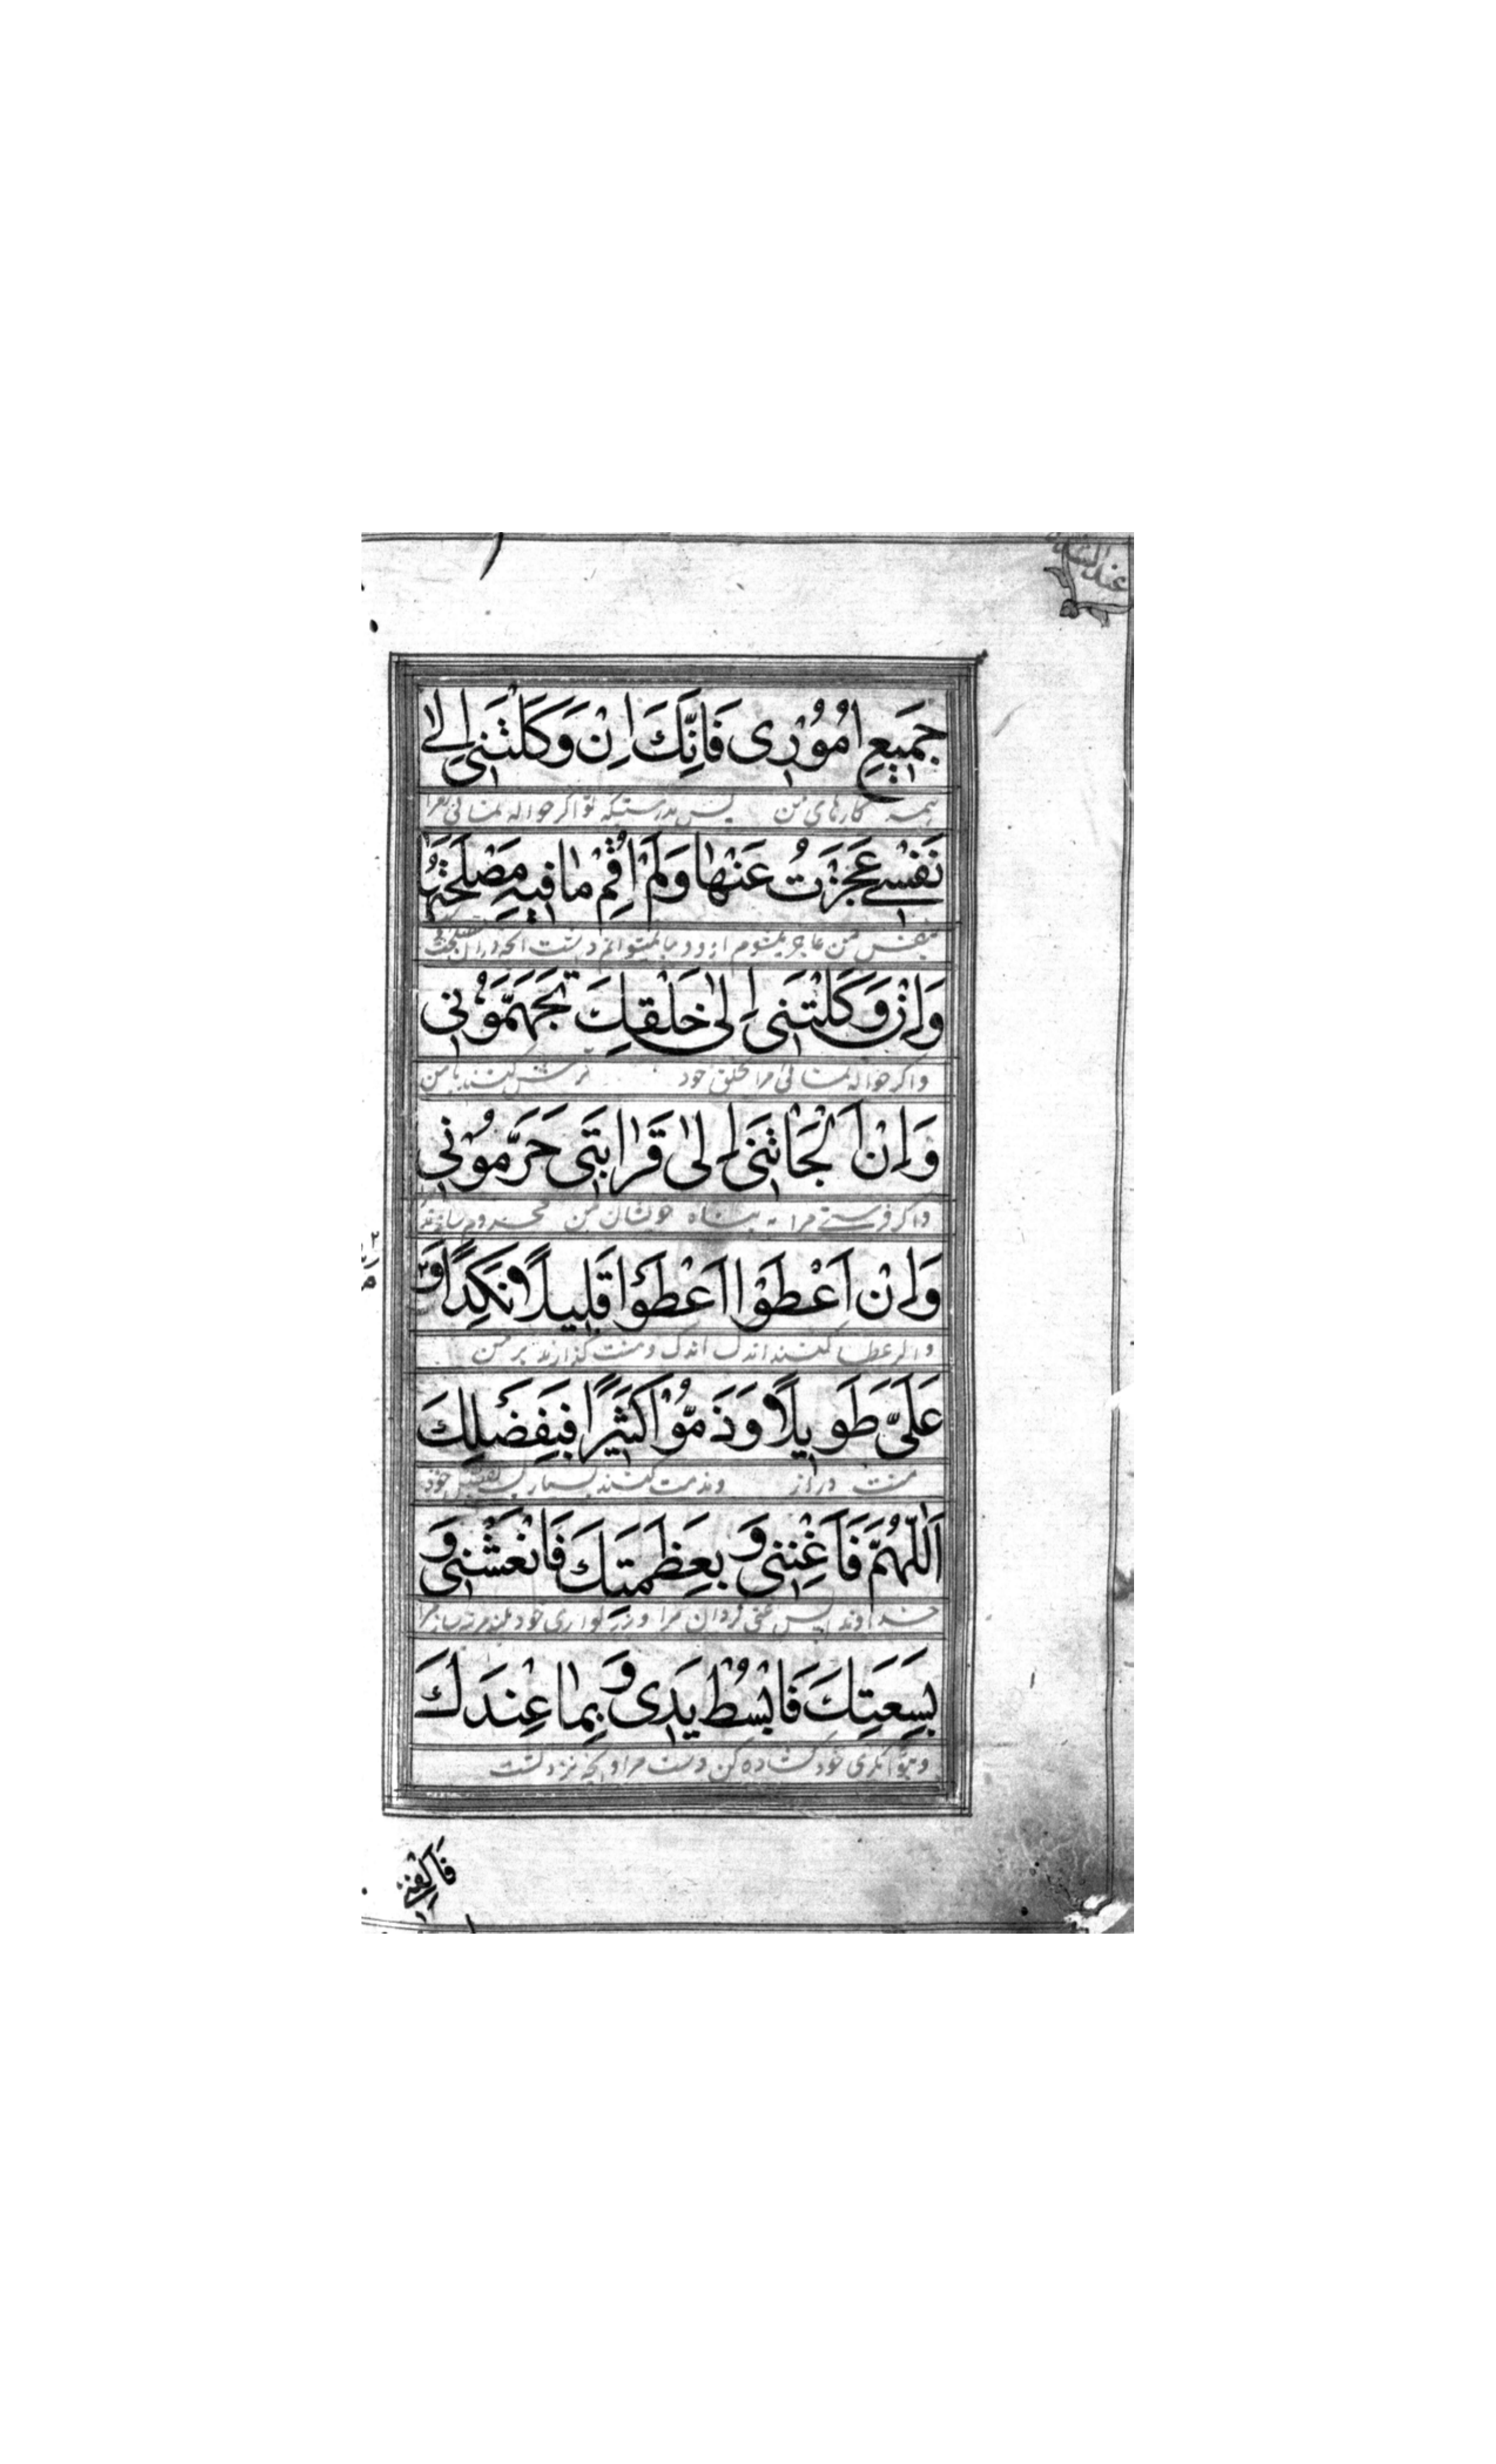 عند الشدة
جَمِيعِ اُمُوْرِى فَاِنَّكَ اِنْ وَكَلْتَنِى اِلٰى
همه کارهای من پس بدرستیکه تو اگر حواله نمائی مرا
نَفْسِى عَجَزْتُ عَنْهَا وَلَمْ اُقِمْ مَا فِيهِ مَصْلَحَتُهَا
بنفس من عاجز میشوم ازو و بر پا نمیتوانم داشت آنچه در آن مصلحت
وَاِنْ وَكَلْتَنِى اِلٰى خَلْقِكَ تَجَهَّمُوْنِى
واکر حواله نمائی مرا بخلق خود ترش کنند با من
وَاِنْ اَلْجَاتَنِى اِلٰى قَرَابَتِى حَرَّمُوْنِى
واکر فرستی مرا به پناه خویشان من محروم سازند
وَاِنْ اَعْطَوْا اَعْطَوْا قَلِيلًا نَكِدًا وَ
واکر عطا کنند اندک اندک و منت گذارند بر من
عَلَىَّ طَوِيلًا وَذَمُّوْا كَثِيْرًا فَبِفَضْلِكَ
منت دراز و مذمت کنند بسیار پس خود
اَللّٰهُمَّ فَاَغْنِنِى وَ بِعَظَمَتِكَ فَانْعَشْنِى وَ
خداوندا پس غنی کردان مرا و بزرکواری خود بلند مرتبه ساز مرا
بِسَعَتِكَ فَابْسُطْ يَدِى وَ بِمَا عِنْدَكَ
و بتوانکری خود کشاده کن دست مرا و بآنچه نزد تست
فَاكْفِنِى